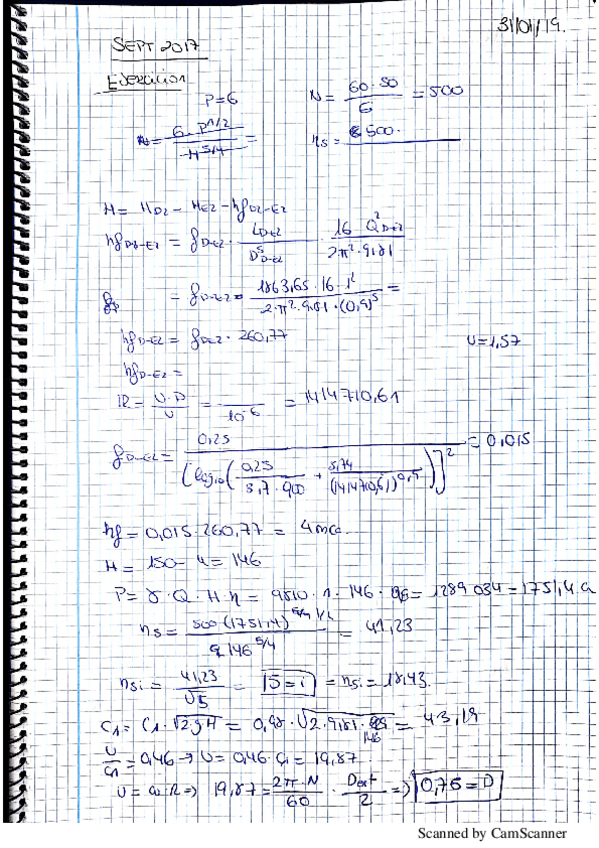 31/01/19.
SEPT 2017
EJERCICIO 1
P=6
N = 60·50 / 6 = 500
n = 6·P^1/2 / H^5/4 =
ns = 500·
H = H_D2 - H_E2 - hf_D2-E2
hf_D2-E2 = f_D-E2 · L_D-E2 / D^5_D-E2 · 16 Q^2_D-E2 / 2π^2·9,81
= f_D-E2 = 1863,65·16·1^2 / 2·π^2·9,81·(0,9)^5 =
hf_D-E2 = f_D-E2 · 260,77
U=1,57
hf_D-E2 =
IR = U·D / υ = / 10^-6 = 1414710,61
f_D-E2 = 0,25 / [log10(0,25 / 3,7·900 + 5,74 / (1414710,61)^0,9)]^2 = 0,015
hf = 0,015·260,77 = 4 mca.
H = 150 - 4 = 146
P = γ·Q·H·η = 9810·1·146· = 1289034 = 1751,4
ns = 500(1751,4)^1/2 / 146^5/4 = 41,23
nsi = 41,23 / √5 = 5=i = nsi = 18,43
C1 = C1·√2gH = 0,98·√2·9,81·146 = 43,19
U/C1 = 0,46 → U = 0,46·C1 = 19,87
U = ω·R ⇒ 19,87 = 2π·N / 60 · Dext / 2 ⇒ 0,76 = D
Scanned by CamScanner